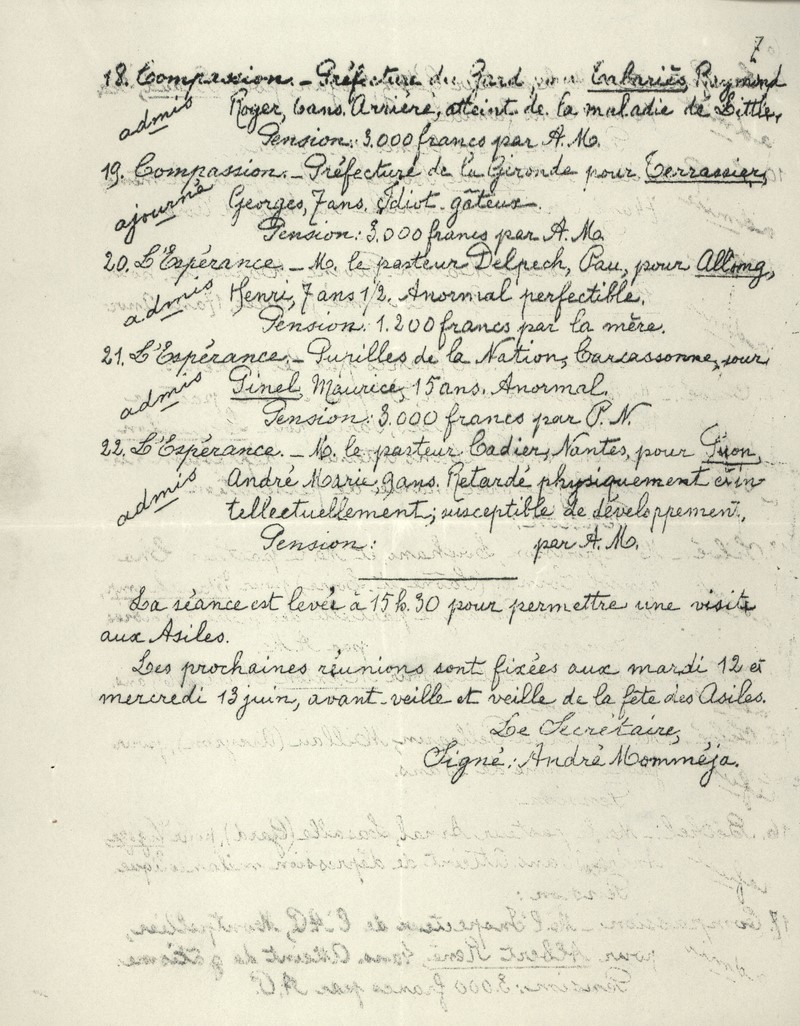 7
18. Compassion. - Préfecture du Gard pour Cabariès, Raymond
admis
Roger, 6 ans. Arriéré, atteint de la maladie de Little,
Pension: 3.000 francs par A. M.
19. Compassion. - Préfecture de la Gironde pour Terrassier,
ajourné
Georges, 7 ans. Idiot gâteux.
Pension: 3.000 francs par A. M.
20. L'Espérance. - M. le pasteur Delpech, Pau, pour Allong,
admis
Henri, 7 ans 1/2. Anormal perfectible.
Pension: 1.200 francs par la mère.
21. L'Espérance. - Pupilles de la Nation, Carcassonne, pour
admis
Pinel, Maurice, 15 ans. Anormal.
Pension: 3.000 francs par P. N.
22. L'Espérance. - M. le pasteur Cadier, Nantes, pour
admis
André Marie, 9 ans. Retardé physiquement et in
tellectuellement; susceptible de développement.
Pension: par A. M.
La séance est levée à 15 h. 30 pour permettre une visite
aux Asiles.
Les prochaines réunions sont fixées aux mardi 12 et
mercredi 13 juin, avant-veille et veille de la fête des Asiles.
Le Secrétaire,
Signé: André Momméja.